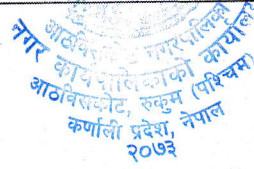 आठबिसकोट नगरपालिका
नगर कार्यपालिकाको कार्यालय
आठविसकोट, रुकुम (पश्चिम)
कर्णाली प्रदेश, नेपाल
२०७३